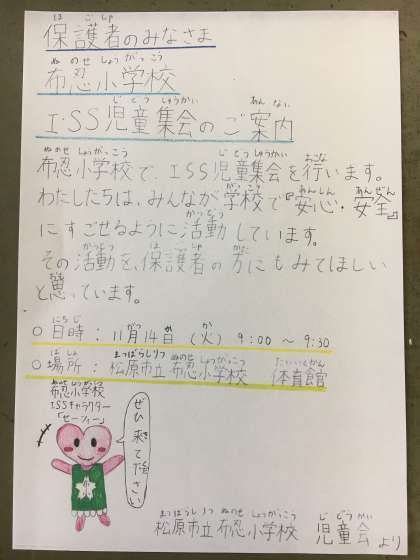 保護者のみなさま
布忍小学校
I・SS児童集会のご案内
布忍小学校で、ISS児童集会を行います。
わたしたちは、みんなが学校で『安心・安全』
にすごせるように活動しています。
その活動を、保護者の方にもみてほしい
と思っています。
○日時：11月14日（火）9:00～9:30
○場所：松原市立布忍小学校 体育館
布忍小学校
ISSキャラクター
「セーフィー」
ぜひ来て下さい
布
松原市立布忍小学校 児童会より